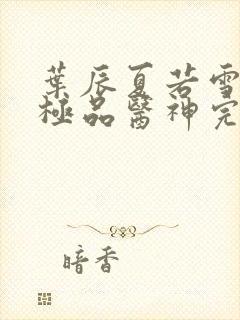 葉辰夏若雪
極品醫神完
暗香